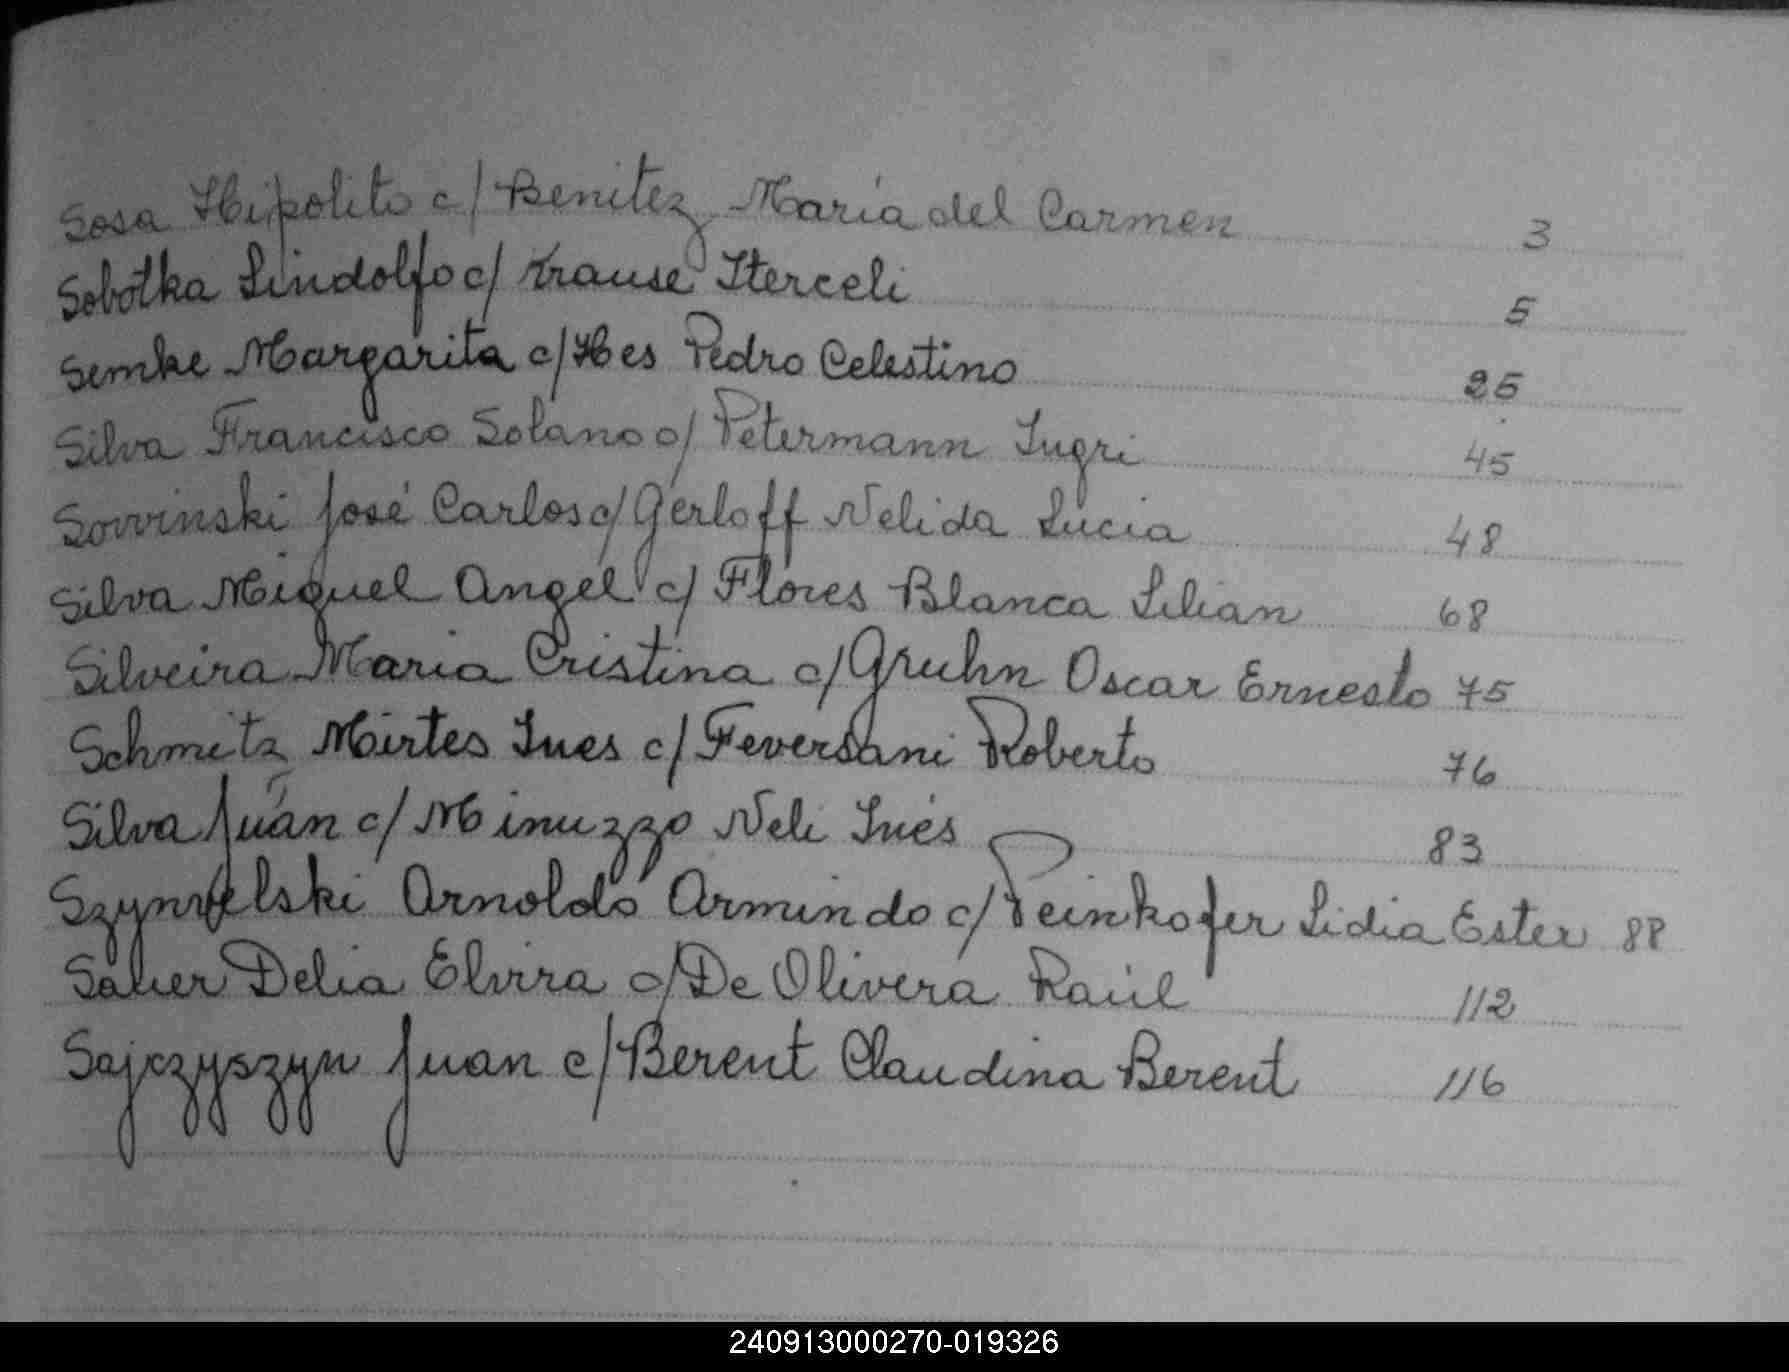 Sosa Hipolito c/ Benitez María del Carmen 3
Sobotka Lindolfo c/ Krause Iterceli 5
Semke Margarita c/ Hes Pedro Celestino 25
Silva Francisco Solano c/ Petermann Ingri 45
Sovvinski José Carlos c/ Gerloff Nelida Lucia 48
Silva Miguel Angel c/ Flores Blanca Lilian 68
Silveira Maria Cristina c/ Gruhn Oscar Ernesto 75
Schmitz Mirtes Ines c/ Feversani Roberto 76
Silva Juan c/ Minuzzo Neli Inés 83
Arnoldo Armindo c/ Peinkofer Lidia Ester 88
Sauer Delia Elvira c/ De Olivera Raúl 112
Sajczyszyn Juan c/ Berent Claudina Berent 116
240913000270-019326